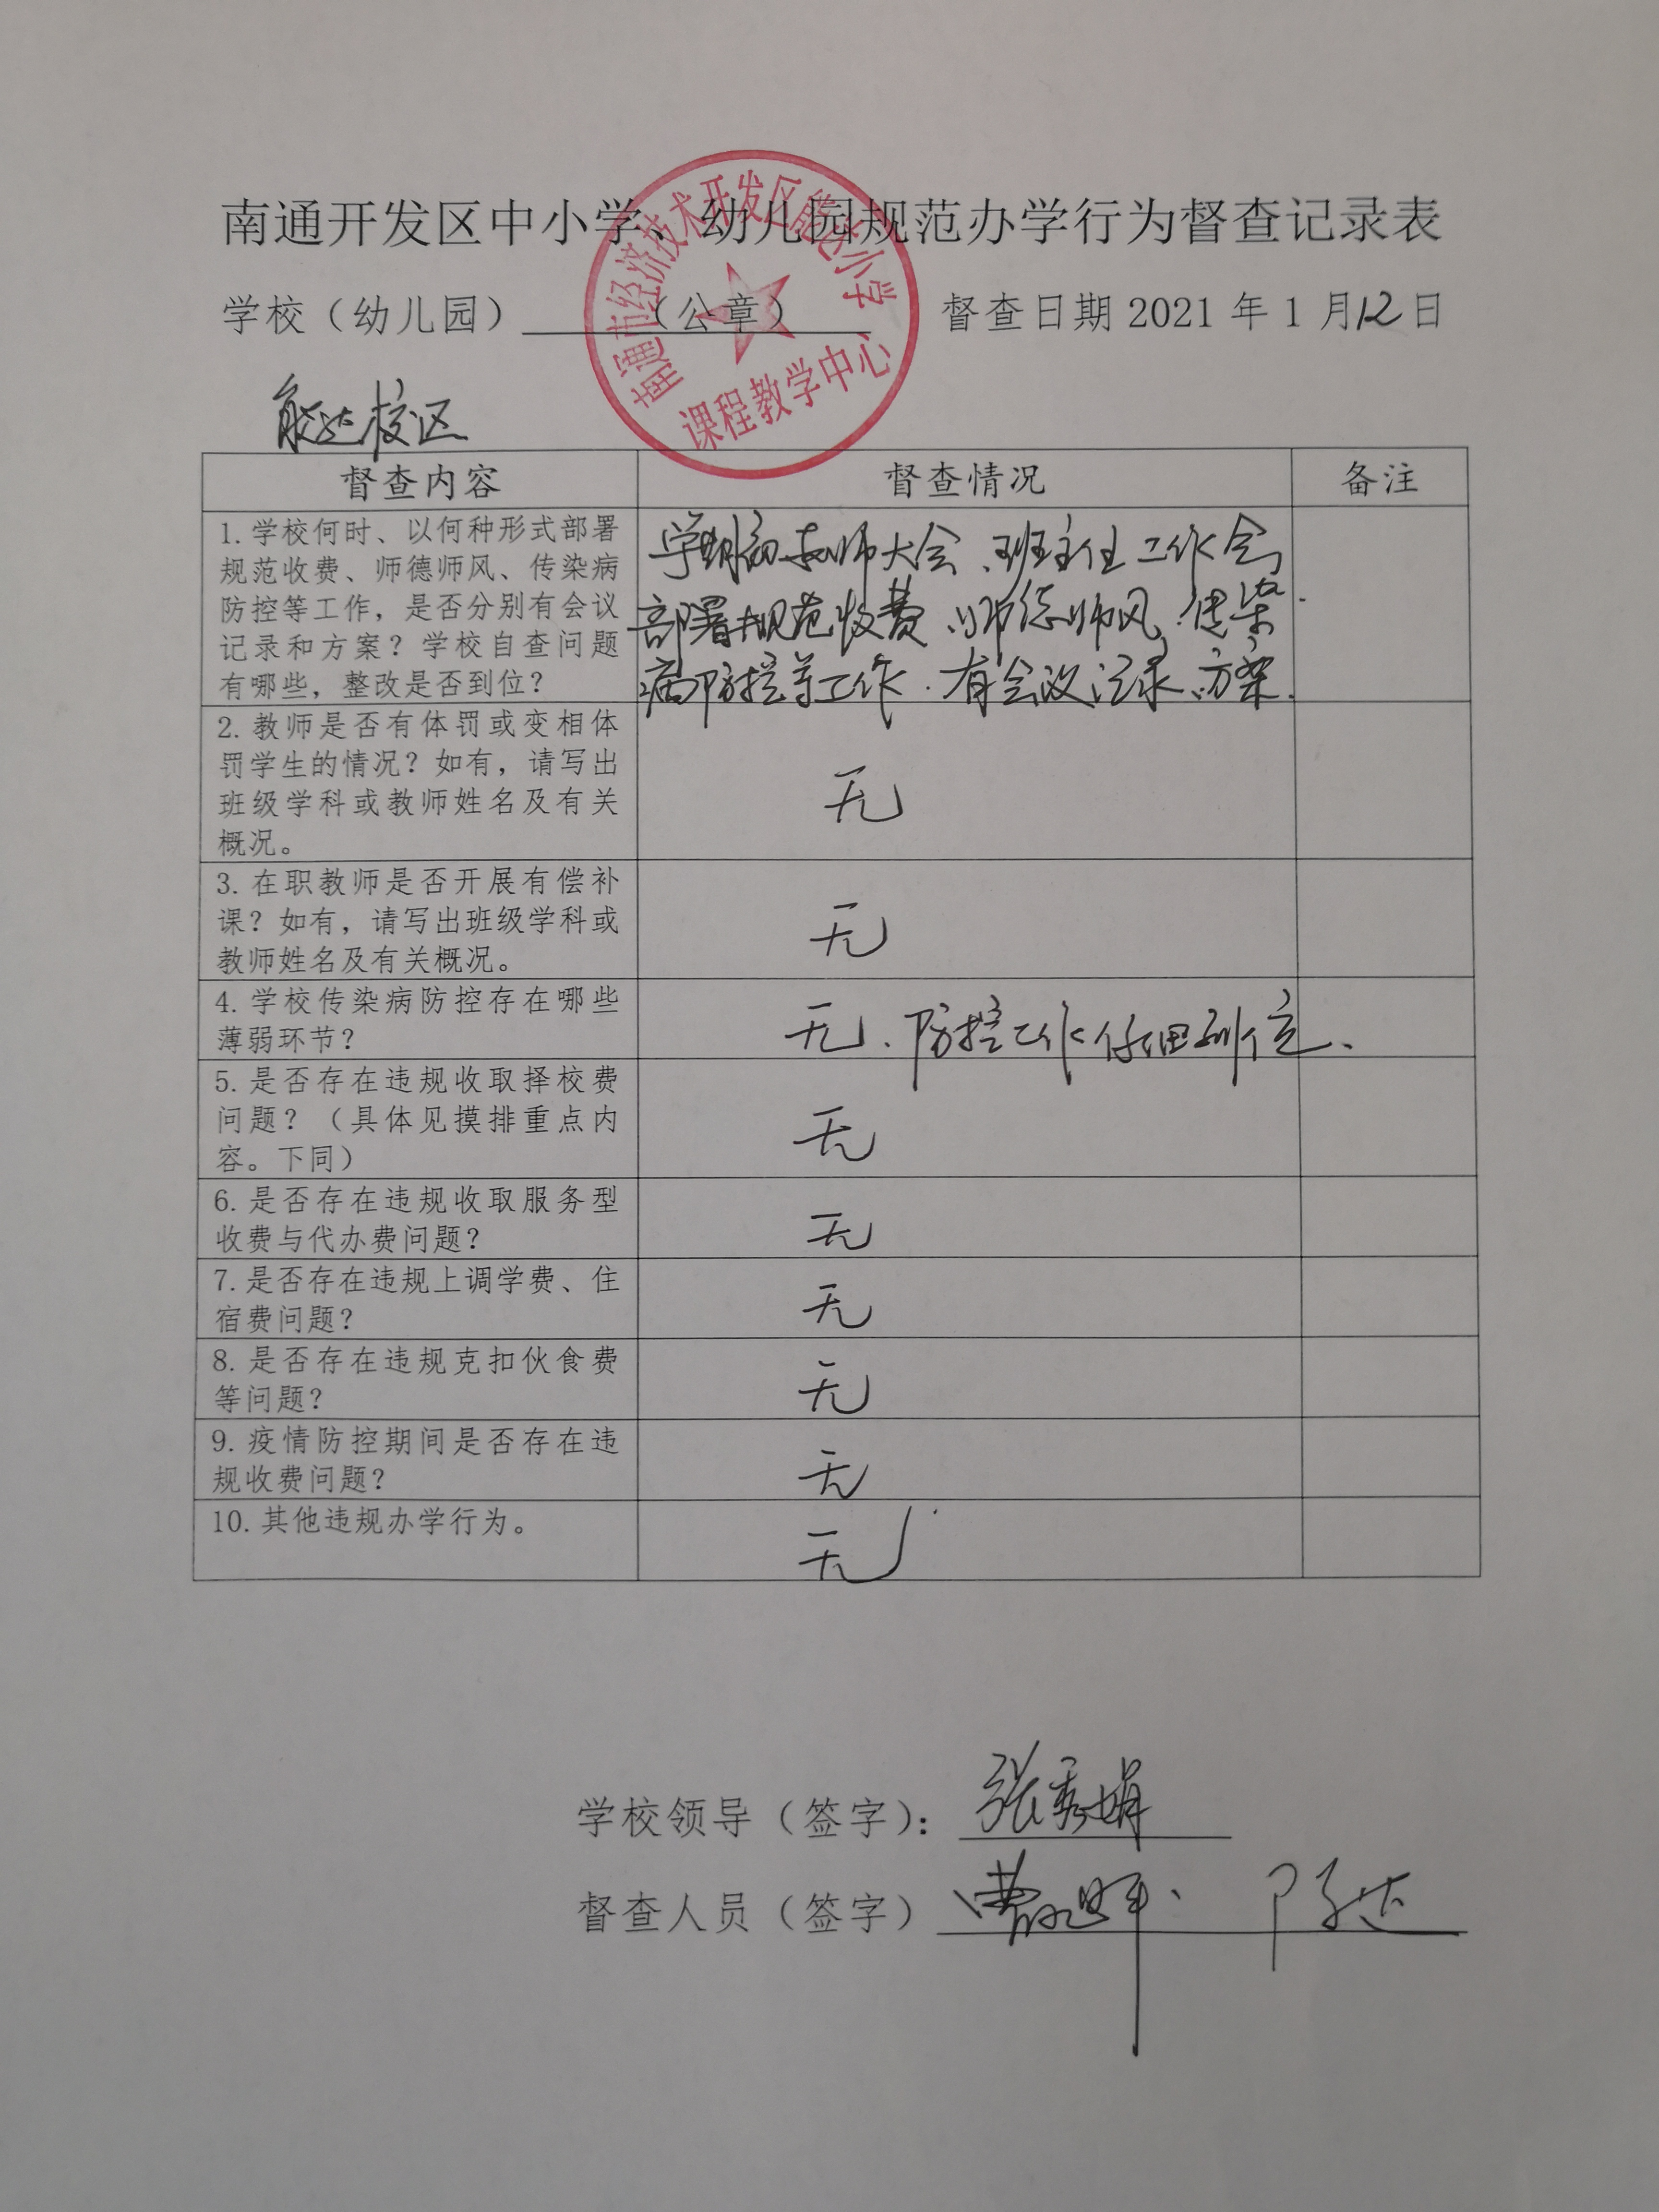 南通开发区中小学、幼儿园规范办学行为督查记录表
南通市经济技术开发区能达小学
课程教学中心
学校（幼儿园） （公章） 督查日期 2021 年 1 月 12 日
能达校区
督查内容 督查情况 备注
1. 学校何时、以何种形式部署
规范收费、师德师风、传染病
防控等工作，是否分别有会议
记录和方案？学校自查问题
有哪些，整改是否到位？
学期初教师大会、班主任工作会，
部署规范收费、师德师风、传染
病防控等工作．有会议记录、方案．
2. 教师是否有体罚或变相体
罚学生的情况？如有，请写出
班级学科或教师姓名及有关
概况。
无
3. 在职教师是否开展有偿补
课？如有，请写出班级学科或
教师姓名及有关概况。
无
4. 学校传染病防控存在哪些
薄弱环节？
无．防控工作仔细到位、
5. 是否存在违规收取择校费
问题？（具体见摸排重点内
容。下同）
无
6. 是否存在违规收取服务型
收费与代办费问题？
无
7. 是否存在违规上调学费、住
宿费问题？
无
8. 是否存在违规克扣伙食费
等问题？
无
9. 疫情防控期间是否存在违
规收费问题？
无
10. 其他违规办学行为。
无
学校领导（签字）： 张秀娟
督查人员（签字）